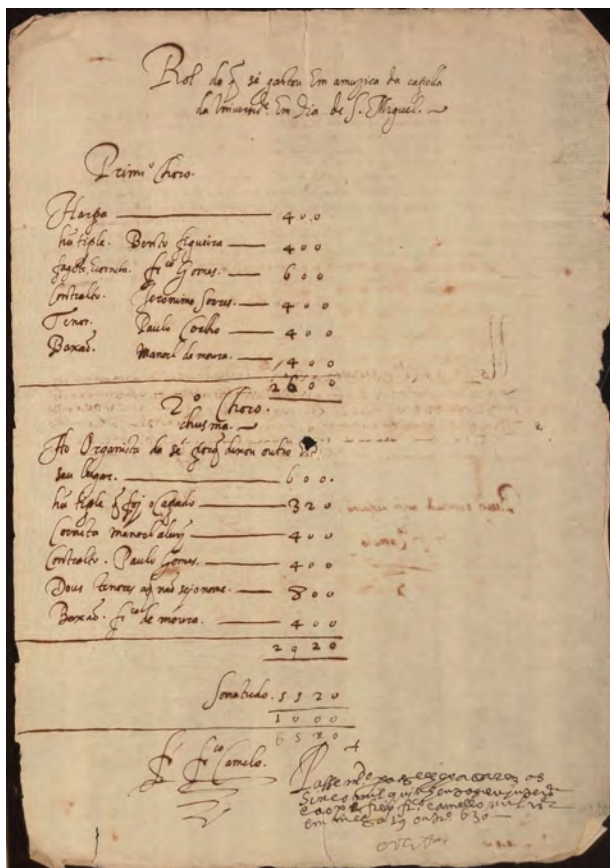 Rol do q̃ sé gastou Em a muzica da capella
da Uniuersid.e Em Dia de S. Miguel.
Primr.o Choro.
Harpa 400
hũ tiple. Bento figueira 400
fagote, Corneta. fr.co Gomes. 600
Contralto. Jeronimo Soares. 400
Tenor. Paulo Coelho 400
Baxaõ. Manoel de moura. 400
2600
2o Choro.
chusma.
Ao Organista da sé porq̃ deixou outro
seu lugar. 600.
hũ tiple q̃ foj o Capado 320
Corneta Manoel aluz̃ 400
Contralto. Paulo Gomes. 400
Dous tenores aq̃ naõ sej o nome. 800
Baxaõ. fr.co de moura. 400
2920
Soma tudo. 5520
1000
6520
fr. fr.co Camelo.
Passe m.do pa se
sinco mil quinhentos e uinte rs
ao p.e frey fr.co camello
em mesa 19 de 630